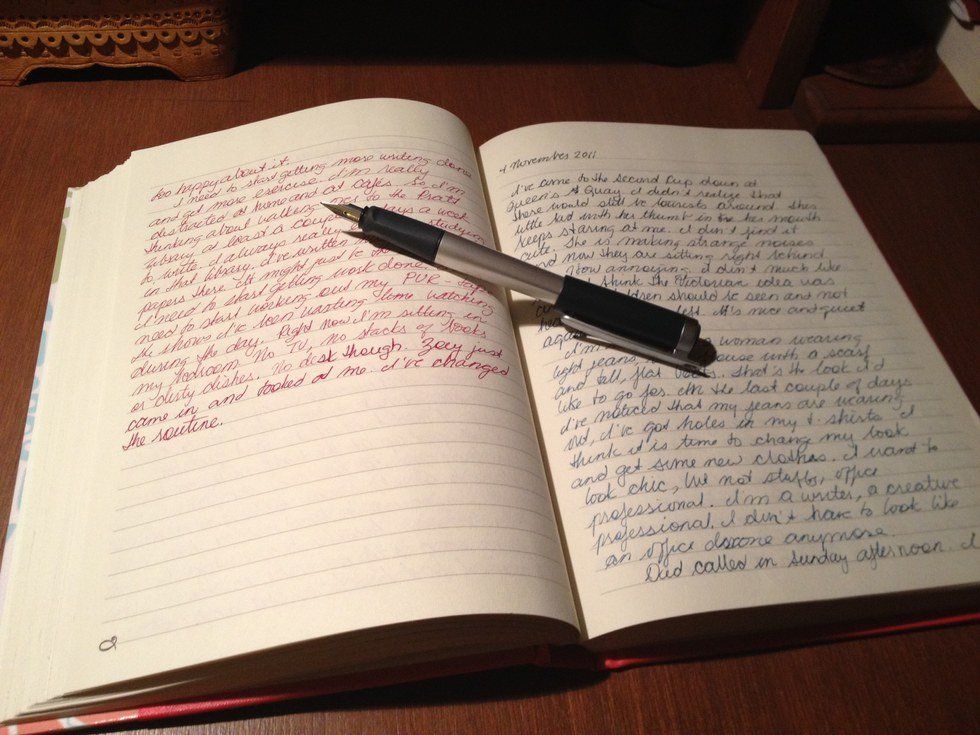 too happy about it.
I need to start getting more writing done
and get more exercise. I'm really
distracted at home and at cafés. So I'm
thinking about walking to the Pratt
library at least a couple days a week
to write. I always really studying
in that library. I've written
papers there. It might just be the
I need to start getting work done.
need to start working out my PVR -
the shows I've been wasting time watching
during the day. Right now I'm sitting in
my bedroom. No TV, no stacks of books
or dirty dishes. No desk though. Zoey just
came in and looked at me. I've changed
the routine.
4 November 2011
I've come to the Second Cup down at
Queen's Quay. I didn't realize that
there would still be tourists around. This
little kid with her thumb in her mouth
keeps staring at me. I don't find it
cute. She is making strange noises
and now they are sitting right behind
How annoying. I don't much like
think the Victorian idea was
children should be seen and not
left. It's nice and quiet
again
I'm woman wearing
light jeans blouse with a scarf
and tall, flat boots. That's the look I'd
like to go for. In the last couple of days
I've noticed that my jeans are wearing
out, I've got holes in my t-shirts. I
think it is time to change my look
and get some new clothes. I want to
look chic, but not stuffy, office
professional. I'm a writer, a creative
professional. I don't have to look like
an office drone anymore.
Dad called in Sunday afternoon. I